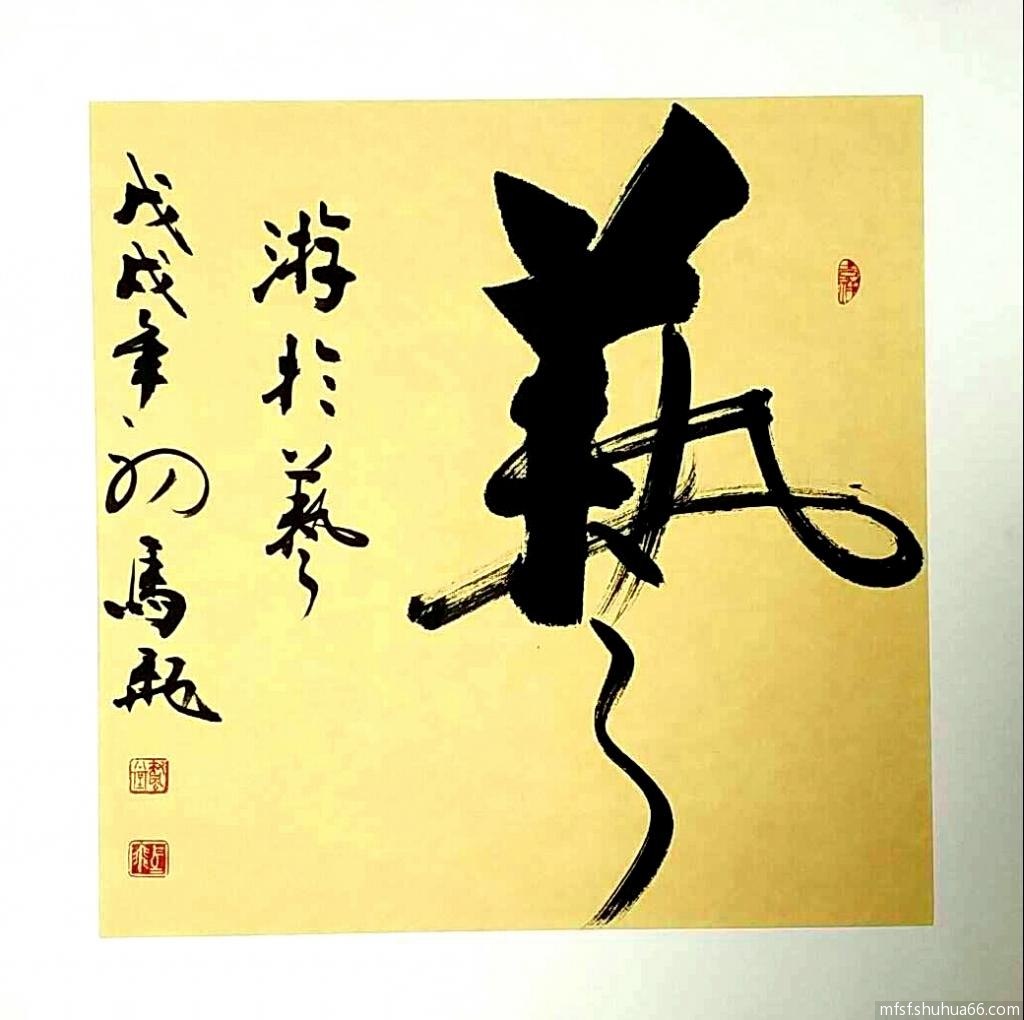 吉祥
藝
游於藝
戊戌年 馬
mfsf.shuhua66.com